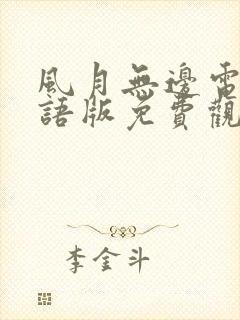 風月無邊電
語版免費觀
李金斗